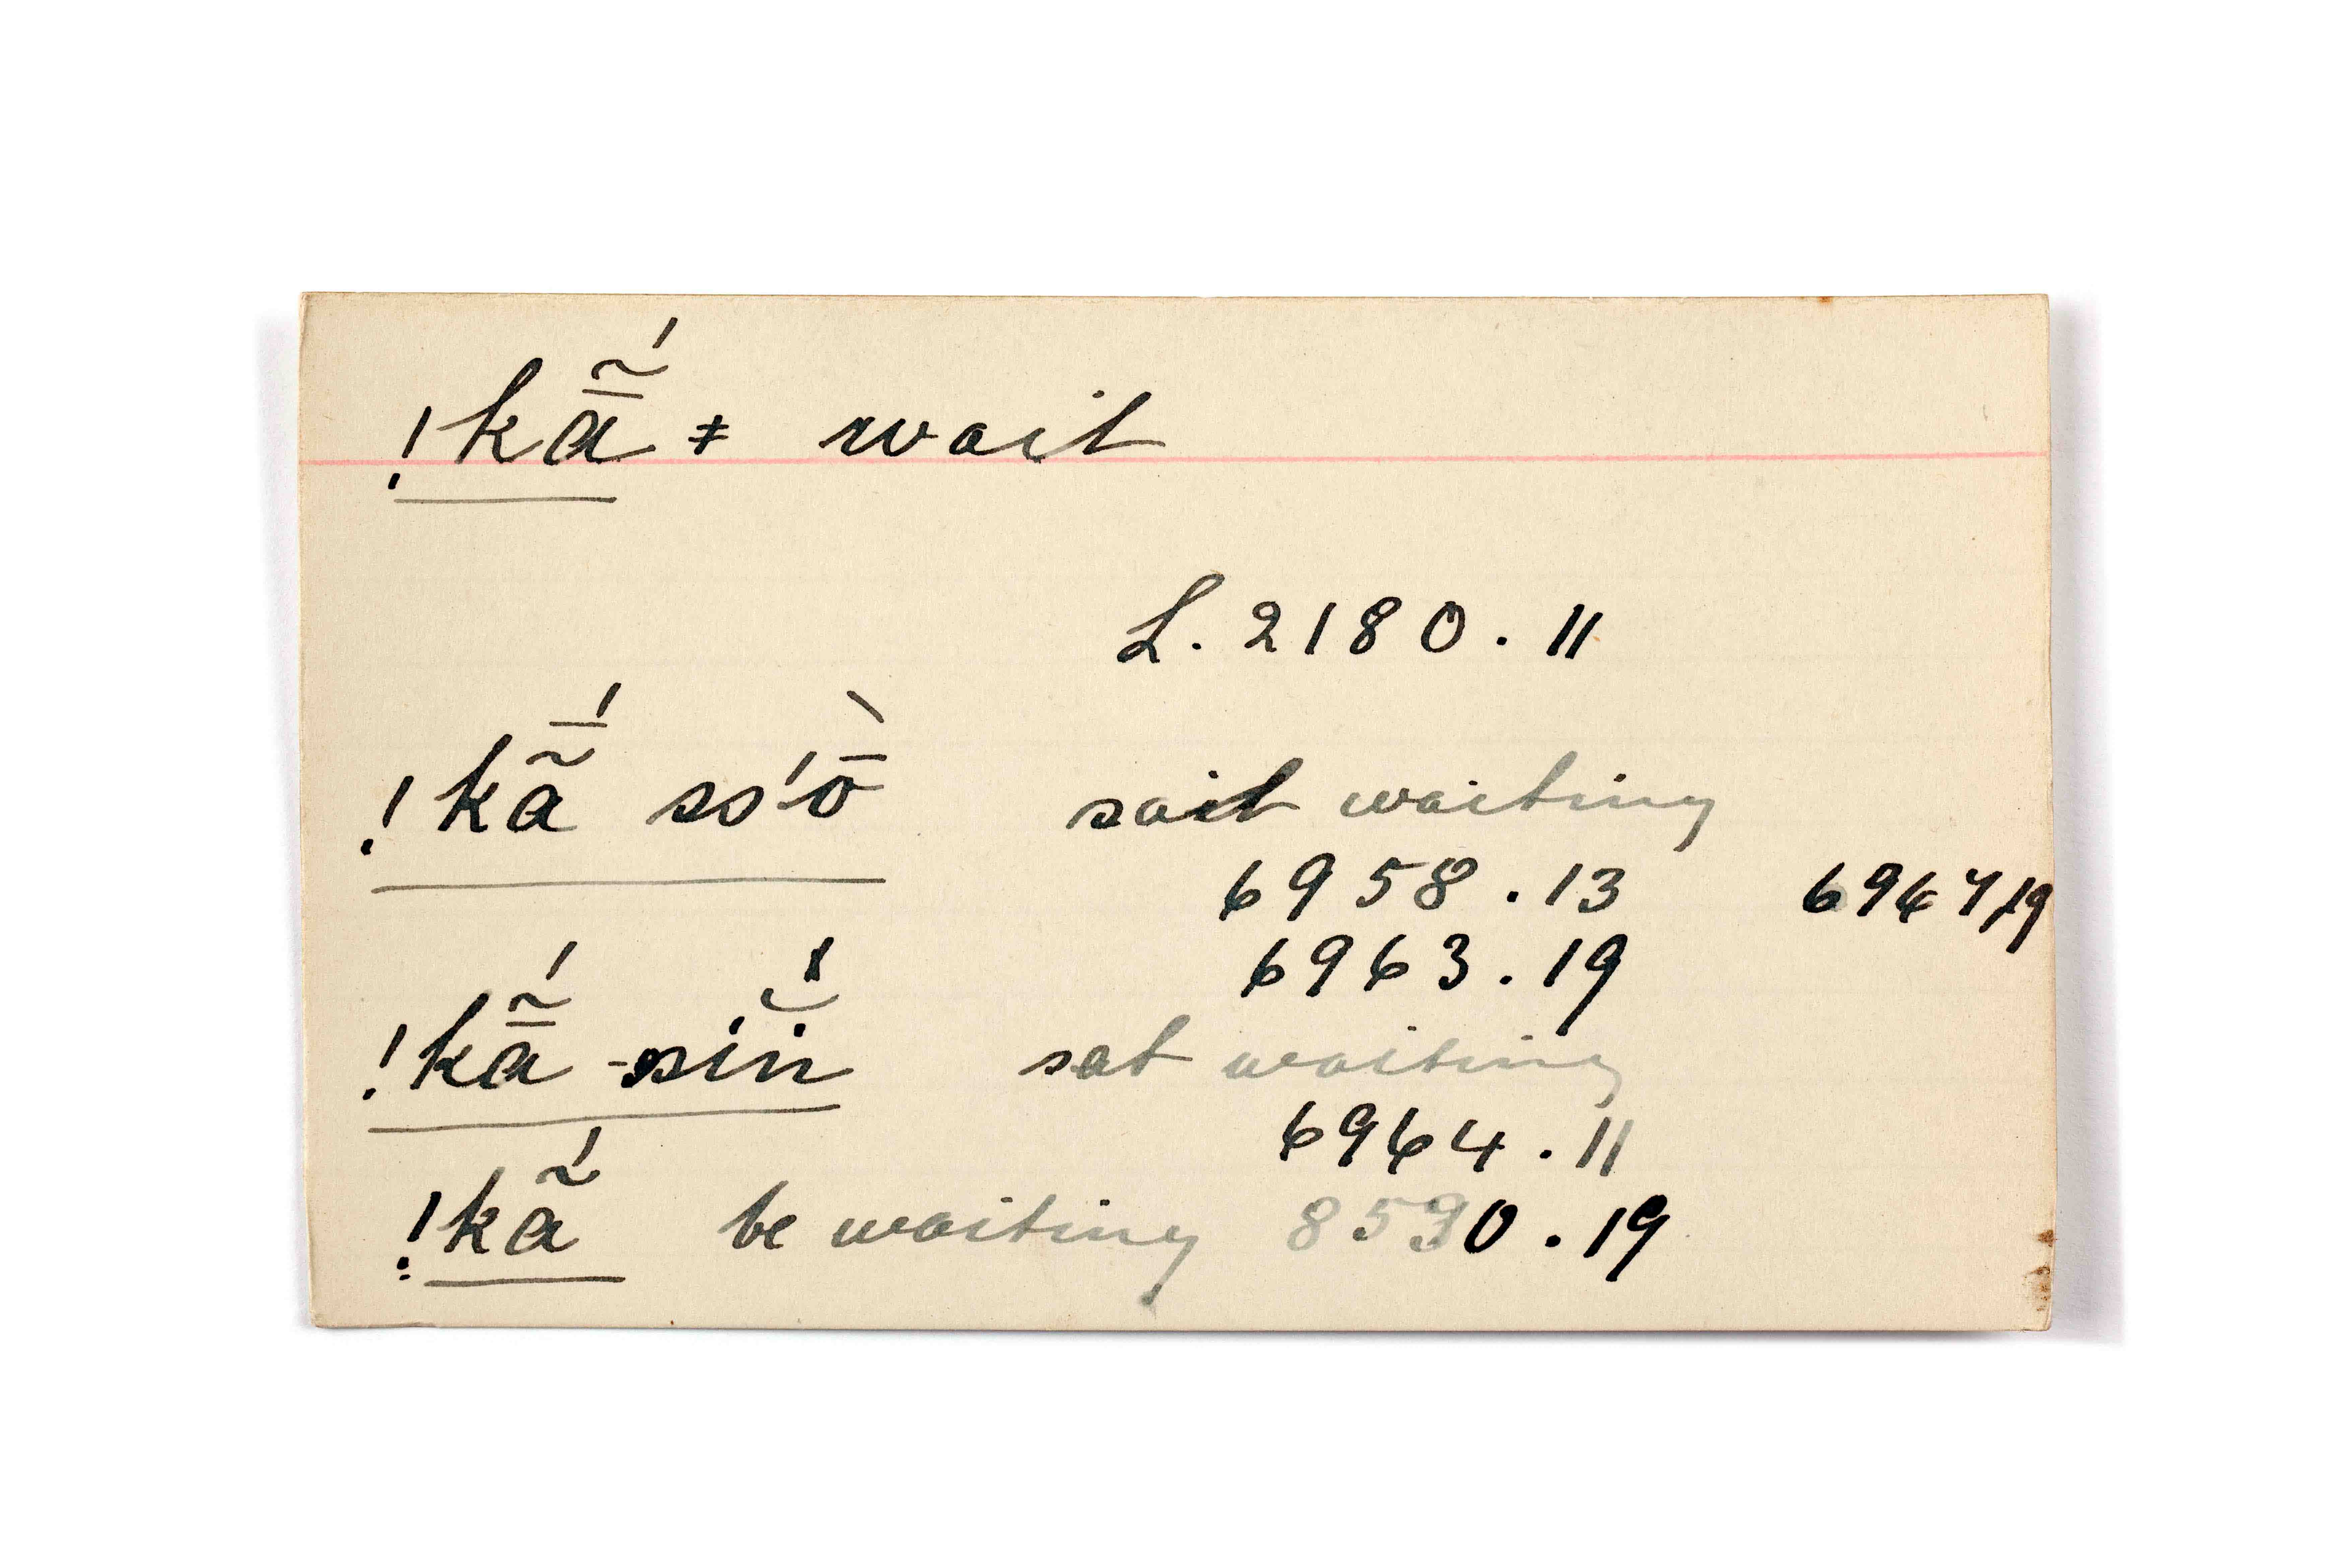 !kā̃́ ≠ wait
L. 2180 . 11
!kã̄́ ss'ṑ sait waiting
6958 . 13 6967/19
6963 . 19
!kā̃́ -sin̆ sat waiting
6964 . 11
!kã́ be waiting 8530 . 19